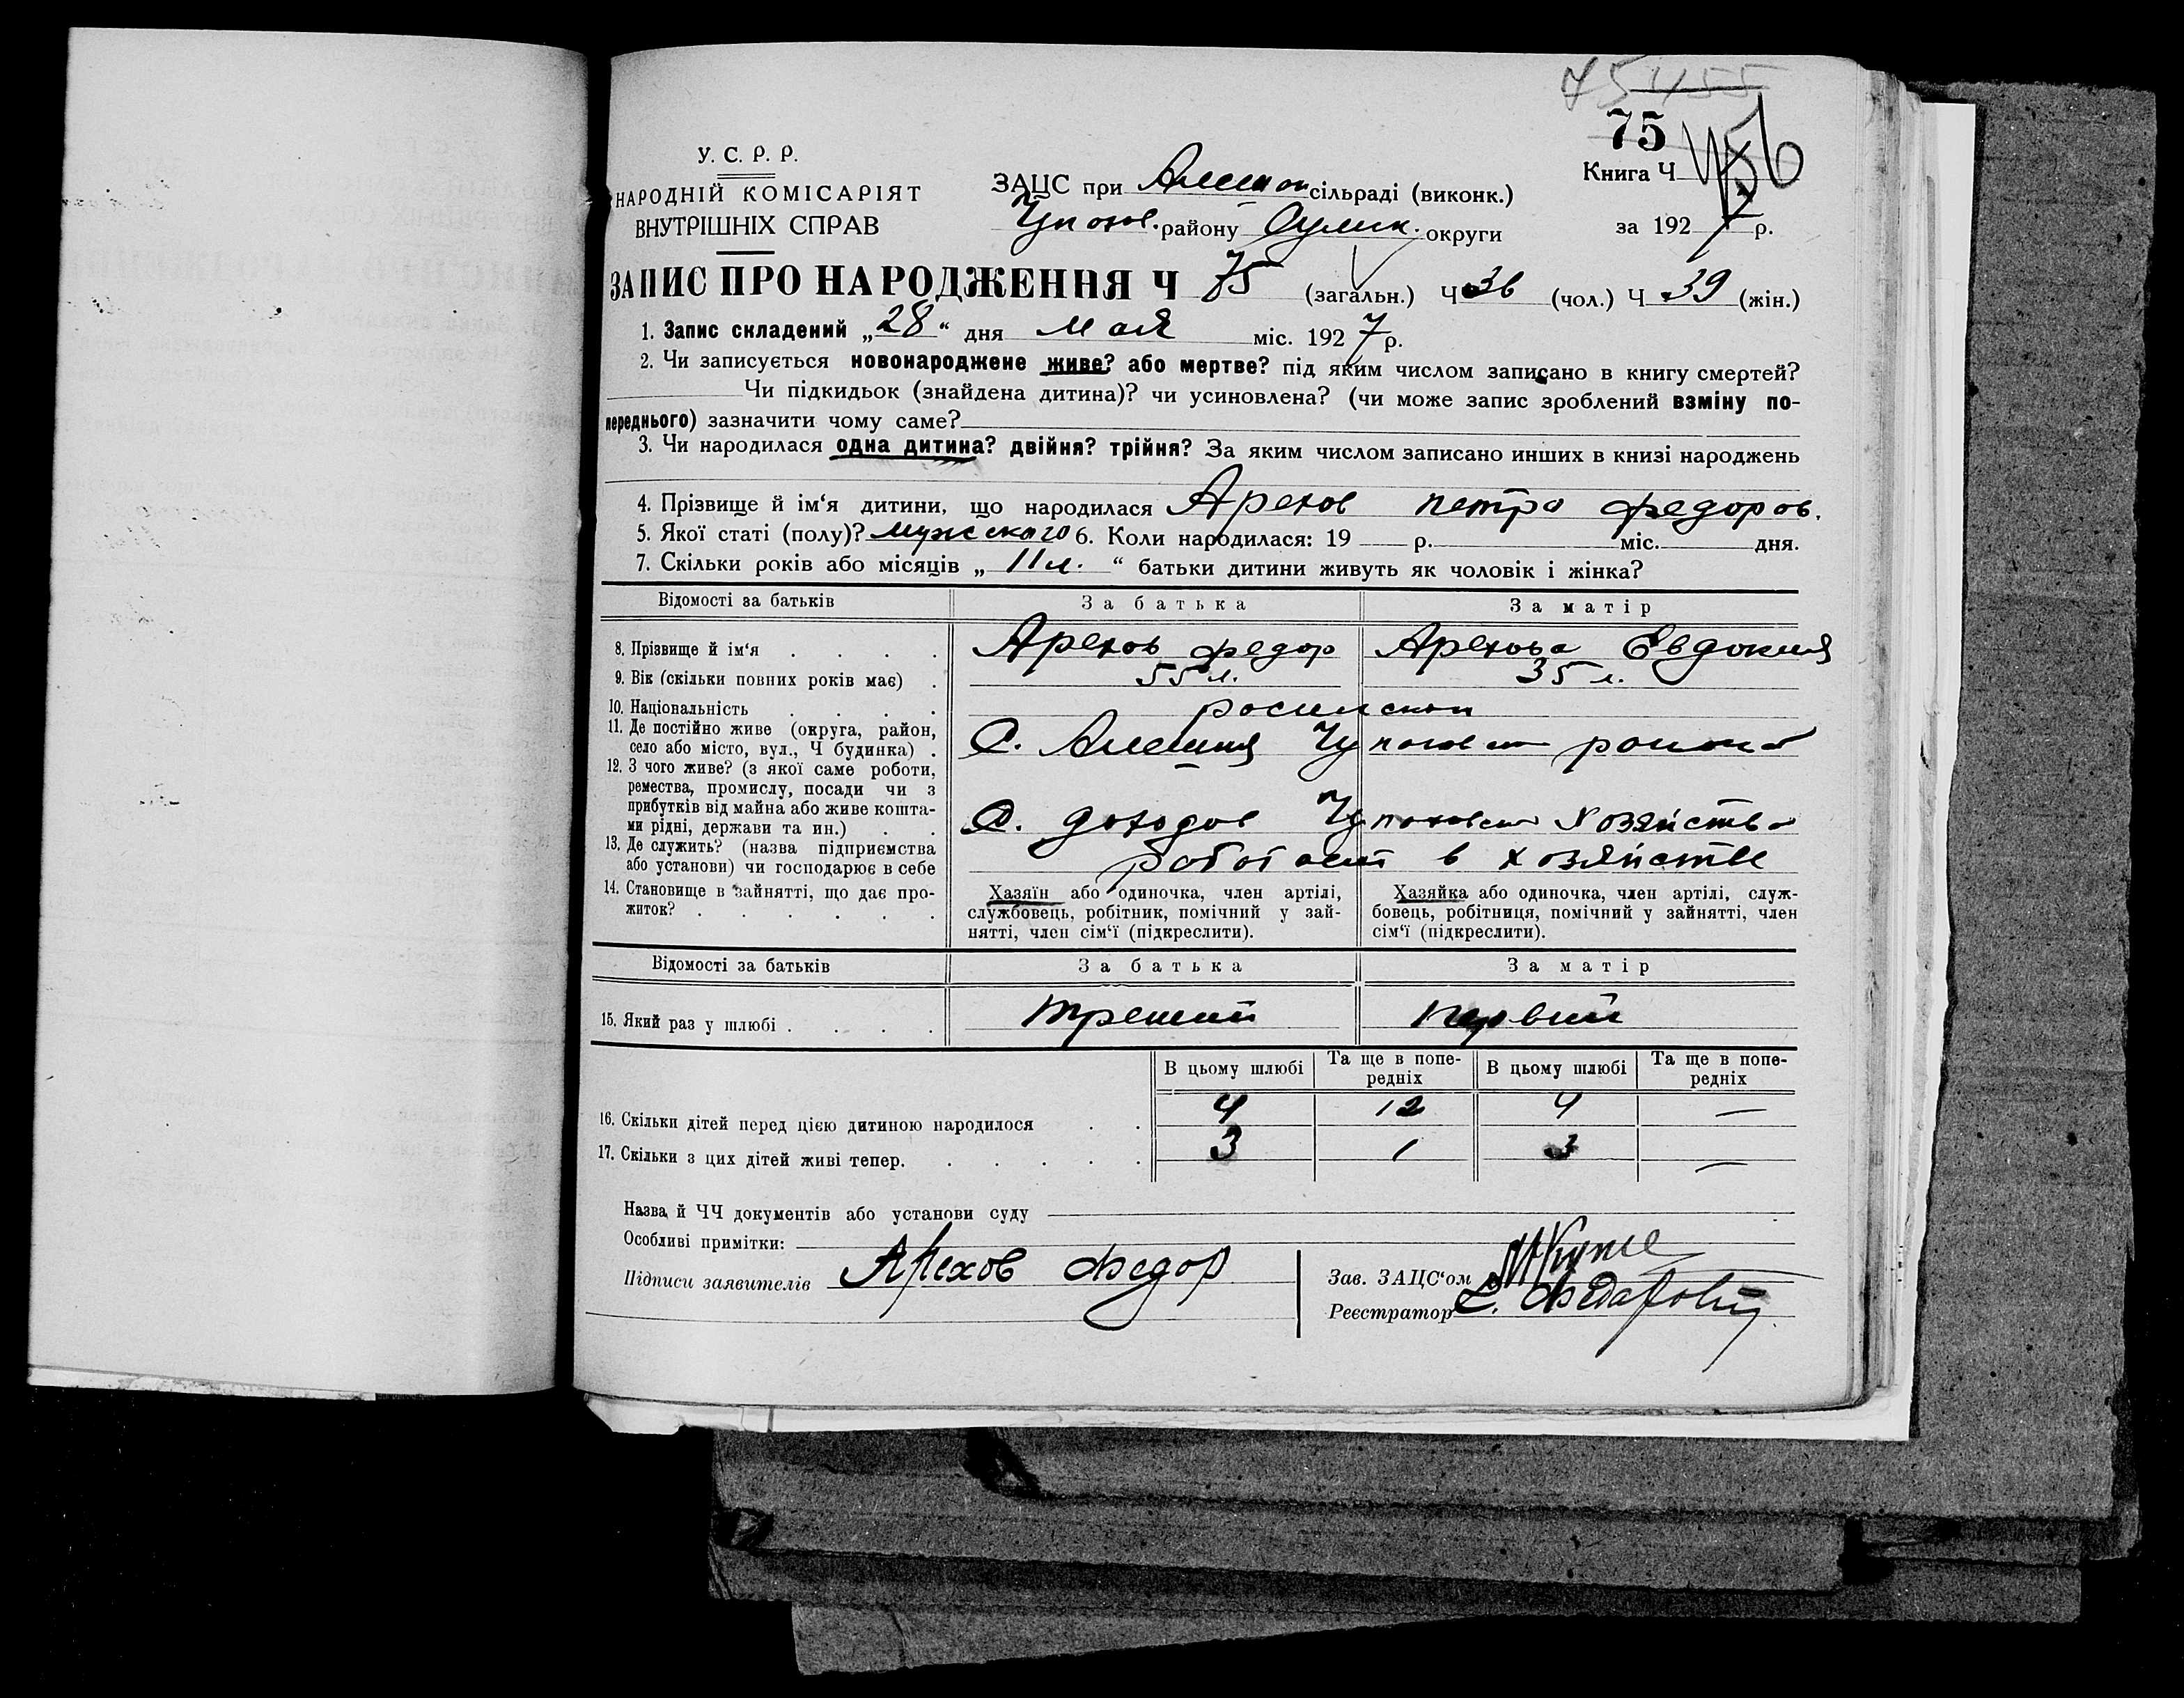 75 455
75
456
У. С. Р. Р.
НАРОДНІЙ КОМІСАРІЯТ
ВНУТРІШНІХ СПРАВ
ЗАЦС при Алешон сільраді (виконк.)
Чупахов. району Сумск. округи
Книга Ч
за 1927 р.
ЗАПИС ПРО НАРОДЖЕННЯ Ч 75 (загальн.) Ч 36 (чол.) Ч 39 (жін.)
1. Запис складений „28“ дня мая міс. 1927 р.
2. Чи записується новонароджене живе? або мертве? під яким числом записано в книгу смертей?
Чи підкидьок (знайдена дитина)? чи усиновлена? (чи може запис зроблений взміну по-
переднього) зазначити чому саме?
3. Чи народилася одна дитина? двійня? трійня? За яким числом записано инших в книзі народжень
4. Прізвище й ім‘я дитини, що народилася Арехов петро федоров.
5. Якої статі (полу)? мужского 6. Коли народилася: 19 р. міс. дня.
7. Скільки років або місяців „ 11 л. “ батьки дитини живуть як чоловік і жінка?
Відомості за батьків За батька За матір
8. Прізвище й ім‘я . . . . Арехов федор Арехова Евдокия
9. Вік (скільки повних років має) . 55 л. 35 л.
10. Національність . . . .
11. Де постійно живе (округа, район,
село або місто, вул., Ч будинка) . С. Алешня района
12. З чого живе? (з якої саме роботи,
ремества, промислу, посади чи з
прибутків від майна або живе кошта-
ми рідні, держави та ин.) . . С. доходов хозяйства
13. Де служить? (назва підприємства
або установи) чи господарює в себе работает в хозяйстве
14. Становище в зайнятті, що дає про-
житок? . . . . . .
Хазяїн або одиночка, член артілі,
службовець, робітник, помічний у зай-
нятті, член сім‘ї (підкреслити).
Хазяйка або одиночка, член артілі, служ-
бовець, робітниця, помічний у зайнятті, член
сім‘ї (підкреслити).
Відомості за батьків За батька За матір
15. Який раз у шлюбі . . . . третий первий
В цьому шлюбі Та ще в попе-редніх В цьому шлюбі Та ще в попе-редніх
16. Скільки дітей перед цією дитиною народилося . . 4 12 4 —
17. Скільки з цих дітей живі тепер. . . . . . 3 1 3 —
Назва й ЧЧ документів або установи суду
Особливі примітки:
Підписи заявителів Арехов Федор
Зав. ЗАЦС‘ом
Реєстратор